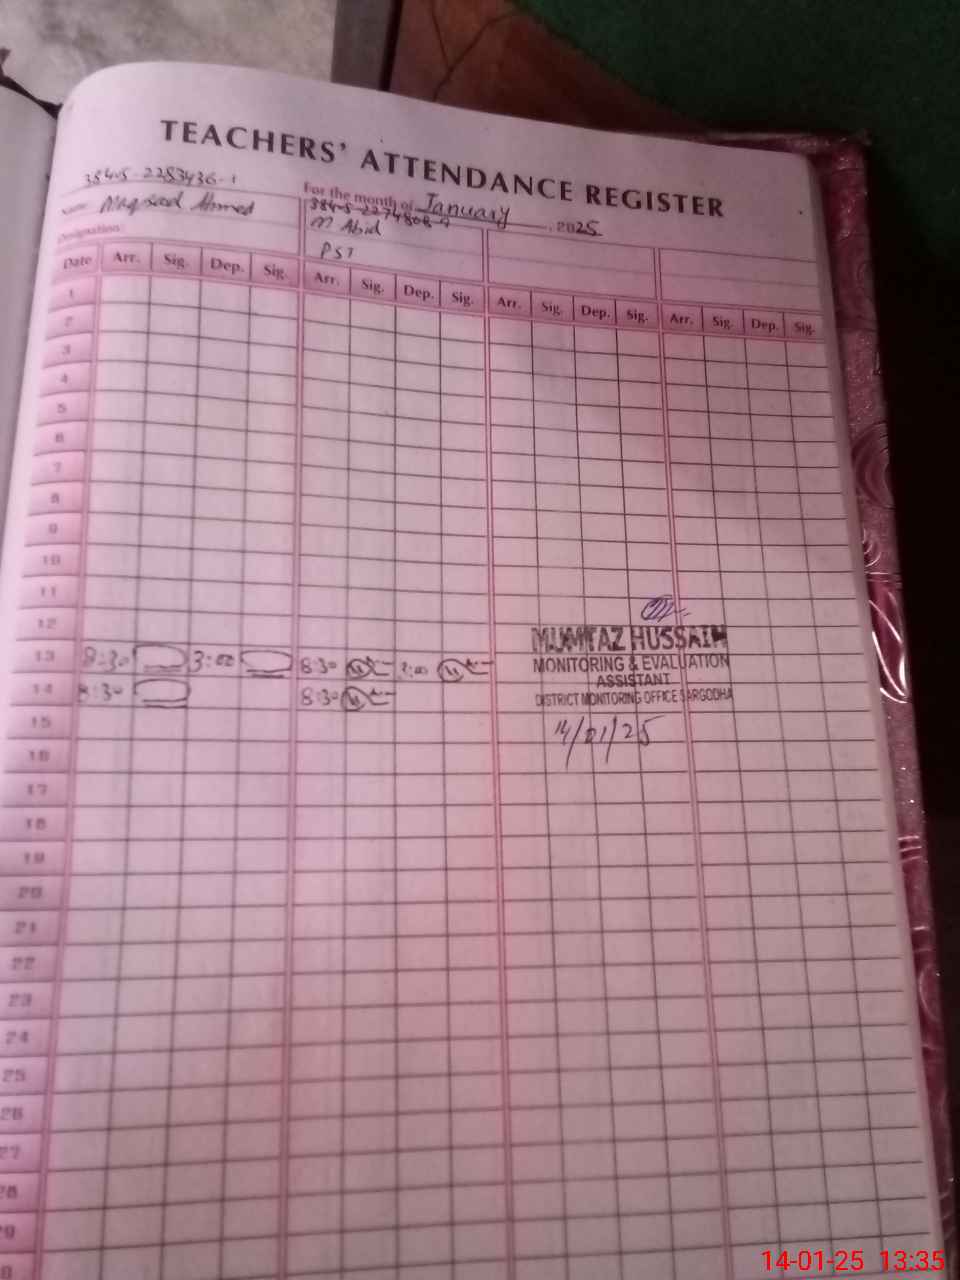 TEACHERS' ATTENDANCE REGISTER
For the month of January, 2025
38405-2283436-1
Name: Maqsood Ahmed
Designation:
M Abid
PST
Date Arr. Sig. Dep. Sig. Arr. Sig. Dep. Sig. Arr. Sig. Dep. Sig. Arr. Sig. Dep. Sig.
1
2
3
4
5
6
7
8
9
10
11
12
13 8:30 3:00 8:30
14 8:30 8:30
MUMTAZ HUSSAIN
MONITORING & EVALUATION
ASSISTANT
DISTRICT MONITORING OFFICE SARGODHA
14/01/25
15
16
17
18
19
20
21
22
23
24
25
26
27
28
29
14-01-25 13:35